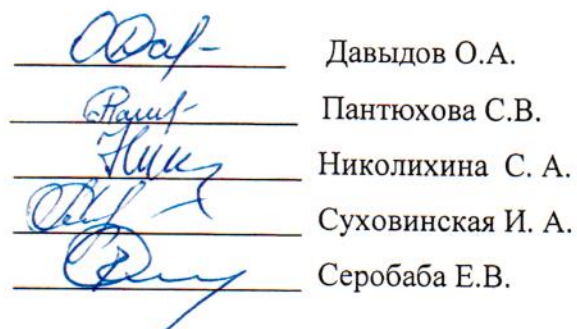 Давыдов О.А.
Пантюхова С.В.
Николихина С. А.
Суховинская И. А.
Серобаба Е.В.